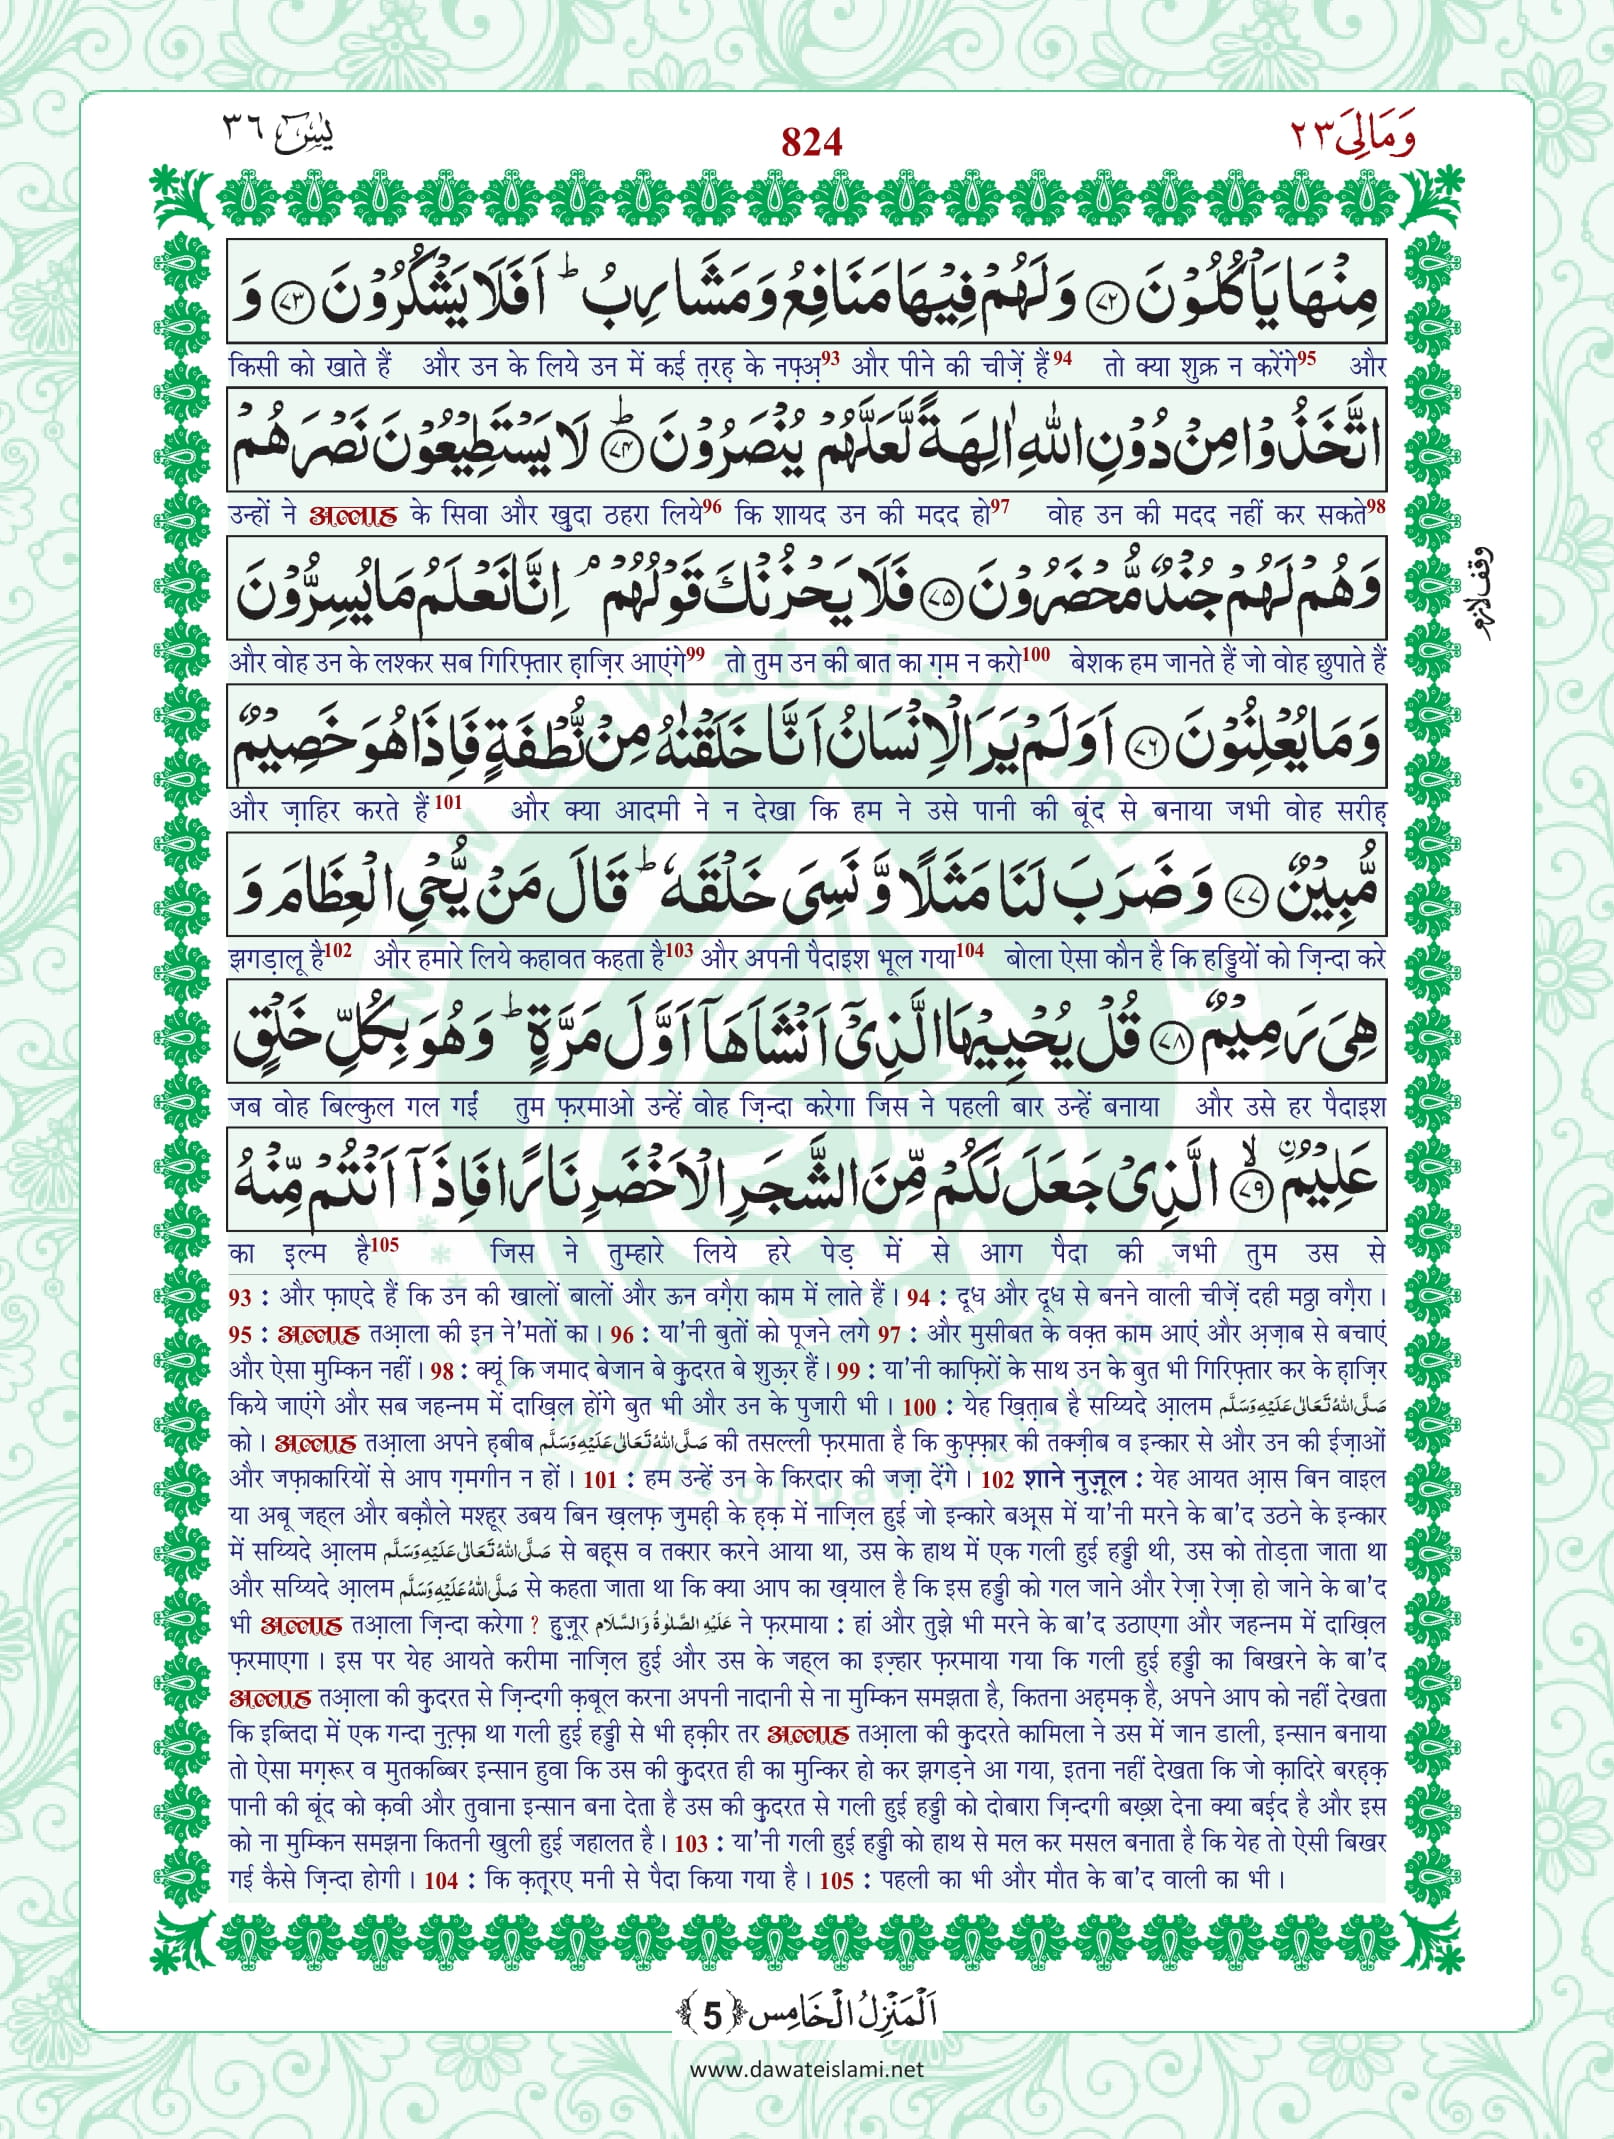 يٰسٓ ٣٦ 824 وَمَالِيَ ٢٣
مِنْهَا يَاْكُلُوْنَ ﴿۷۲﴾ وَلَهُمْ فِيْهَا مَنَافِعُ وَمَشَارِبُ ؕ اَفَلَا يَشْكُرُوْنَ ﴿۷۳﴾ وَ
किसी को खाते हैं और उन के लिये उन में कई त़रह़ के नफ़्अ़93 और पीने की चीज़ें हैं94 तो क्या शुक्र न करेंगे95 और
اتَّخَذُوْا مِنْ دُوْنِ اللّٰهِ اٰلِهَةً لَّعَلَّهُمْ يُنْصَرُوْنَ ﴿ؕ۷۴﴾ لَا يَسْتَطِيْعُوْنَ نَصْرَهُمْ
उन्हों ने अल्लाह के सिवा और ख़ुदा ठहरा लिये96 कि शायद उन की मदद हो97 वोह उन की मदद नहीं कर सकते98
وَهُمْ لَهُمْ جُنْدٌ مُّحْضَرُوْنَ ﴿۷۵﴾ فَلَا يَحْزُنْكَ قَوْلُهُمْ ۘ اِنَّا نَعْلَمُ مَا يُسِرُّوْنَ
وقف لازم
और वोह उन के लश्कर सब गिरिफ़्तार ह़ाज़िर आएंगे99 तो तुम उन की बात का ग़म न करो100 बेशक हम जानते हैं जो वोह छुपाते हैं
وَمَا يُعْلِنُوْنَ ﴿۷۶﴾ اَوَلَمْ يَرَ الْاِنْسَانُ اَنَّا خَلَقْنٰهُ مِنْ نُّطْفَةٍ فَاِذَا هُوَ خَصِيْمٌ
और ज़ाहिर करते हैं101 और क्या आदमी ने न देखा कि हम ने उसे पानी की बूंद से बनाया जभी वोह सरीह़
مُّبِيْنٌ ﴿۷۷﴾ وَضَرَبَ لَنَا مَثَلًا وَّنَسِيَ خَلْقَهٗ ؕ قَالَ مَنْ يُّحْيِ الْعِظَامَ وَ
झगड़ालू है102 और हमारे लिये कहावत कहता है103 और अपनी पैदाइश भूल गया104 बोला ऐसा कौन है कि हड्डियों को ज़िन्दा करे
هِيَ رَمِيْمٌ ﴿۷۸﴾ قُلْ يُحْيِيْهَا الَّذِيْۤ اَنْشَاَهَاۤ اَوَّلَ مَرَّةٍ ؕ وَهُوَ بِكُلِّ خَلْقٍ
जब वोह बिल्कुल गल गईं तुम फ़रमाओ उन्हें वोह ज़िन्दा करेगा जिस ने पहली बार उन्हें बनाया और उसे हर पैदाइश
عَلِيْمُۨ ﴿ۙ۷۹﴾ الَّذِيْ جَعَلَ لَكُمْ مِّنَ الشَّجَرِ الْاَخْضَرِ نَارًا فَاِذَاۤ اَنْتُمْ مِّنْهُ
का इल्म है105 जिस ने तुम्हारे लिये हरे पेड़ में से आग पैदा की जभी तुम उस से
93 : और फ़ाएदे हैं कि उन की खालों बालों और ऊन वग़ैरा काम में लाते हैं । 94 : दूध और दूध से बनने वाली चीज़ें दही मठ्ठा वग़ैरा ।
95 : अल्लाह तआ़ला की इन ने'मतों का । 96 : या'नी बुतों को पूजने लगे 97 : और मुसीबत के वक़्त काम आएं और अ़ज़ाब से बचाएं
और ऐसा मुम्किन नहीं । 98 : क्यूं कि जमाद बेजान बे क़ुदरत बे शुऊ़र हैं । 99 : या'नी काफ़िरों के साथ उन के बुत भी गिरिफ़्तार कर के ह़ाज़िर
किये जाएंगे और सब जहन्नम में दाख़िल होंगे बुत भी और उन के पुजारी भी । 100 : येह ख़ित़ाब है सय्यिदे आ़लम صَلَّى اللهُ تَعَالٰى عَلَيْهِ وَسَلَّم
को । अल्लाह तआ़ला अपने ह़बीब صَلَّى اللهُ تَعَالٰى عَلَيْهِ وَسَلَّم की तसल्ली फ़रमाता है कि कुफ़्फ़ार की तक्ज़ीब व इन्कार से और उन की ईज़ाओं
और जफ़ाकारियों से आप ग़मगीन न हों । 101 : हम उन्हें उन के किरदार की जज़ा देंगे । 102 शाने नुज़ूल : येह आयत आ़स बिन वाइल
या अबू जह्ल और बक़ौले मश्हूर उबय बिन ख़लफ़ जुमह़ी के ह़क़ में नाज़िल हुई जो इन्कारे बअ़्स में या'नी मरने के बा'द उठने के इन्कार
में सय्यिदे आ़लम صَلَّى اللهُ تَعَالٰى عَلَيْهِ وَسَلَّم से बह़्स व तक्रार करने आया था, उस के हाथ में एक गली हुई हड्डी थी, उस को तोड़ता जाता था
और सय्यिदे आ़लम صَلَّى اللهُ عَلَيْهِ وَسَلَّم से कहता जाता था कि क्या आप का ख़याल है कि इस हड्डी को गल जाने और रेज़ा रेज़ा हो जाने के बा'द
भी अल्लाह तआ़ला ज़िन्दा करेगा ? हुज़ूर عَلَيْهِ الصَّلٰوةُ وَالسَّلَام ने फ़रमाया : हां और तुझे भी मरने के बा'द उठाएगा और जहन्नम में दाख़िल
फ़रमाएगा । इस पर येह आयते करीमा नाज़िल हुई और उस के जह्ल का इज़्हार फ़रमाया गया कि गली हुई हड्डी का बिखरने के बा'द
अल्लाह तआ़ला की क़ुदरत से ज़िन्दगी क़बूल करना अपनी नादानी से ना मुम्किन समझता है, कितना अह़मक़ है, अपने आप को नहीं देखता
कि इब्तिदा में एक गन्दा नुत़्फ़ा था गली हुई हड्डी से भी ह़क़ीर तर अल्लाह तआ़ला की क़ुदरते कामिला ने उस में जान डाली, इन्सान बनाया
तो ऐसा मग़रूर व मुतकब्बिर इन्सान हुवा कि उस की क़ुदरत ही का मुन्किर हो कर झगड़ने आ गया, इतना नहीं देखता कि जो क़ादिरे बरह़क़
पानी की बूंद को क़वी और तुवाना इन्सान बना देता है उस की क़ुदरत से गली हुई हड्डी को दोबारा ज़िन्दगी बख़्श देना क्या बईद है और इस
को ना मुम्किन समझना कितनी खुली हुई जहालत है । 103 : या'नी गली हुई हड्डी को हाथ से मल कर मसल बनाता है कि येह तो ऐसी बिखर
गई कैसे ज़िन्दा होगी । 104 : कि क़त़्रए मनी से पैदा किया गया है । 105 : पहली का भी और मौत के बा'द वाली का भी ।
اَلْمَنْزِلُ الْخَامِس ﴿5﴾
www.dawateislami.net